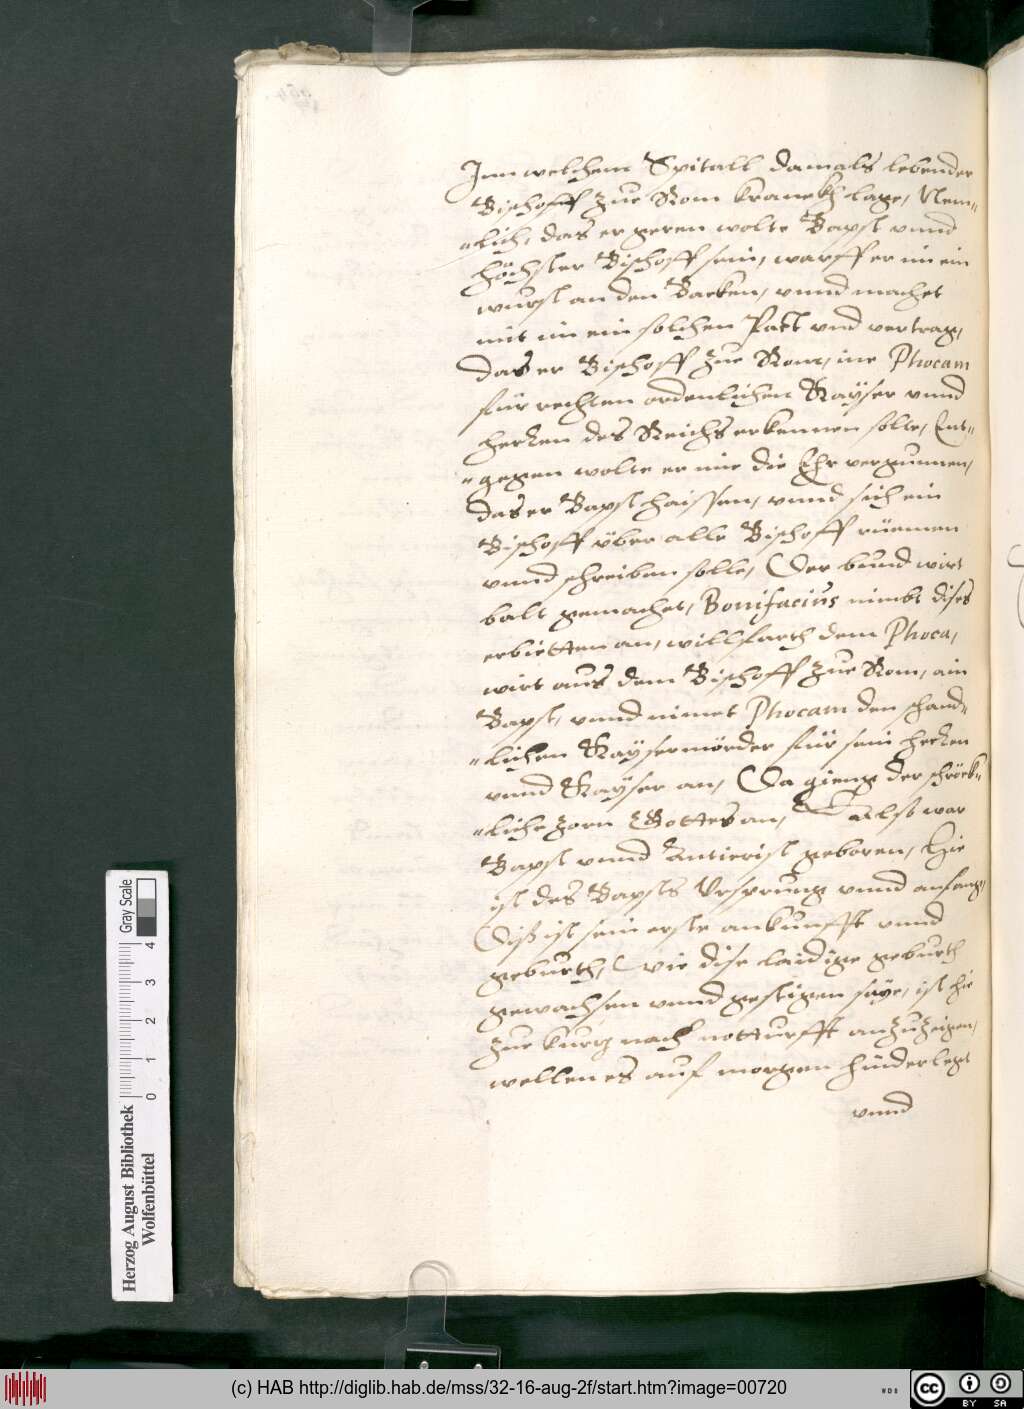 Inn welchem Spitall damals lebender
Bischofff zue Rom kranckh lage, Nem„
„lich, das er geren wolte Bapst vnnd
höchster Bischoff sein, warff er im ein
wurst an den Backen, vnnd machet
mit im ein solchen Pact vnd vertrag,
das er Bischoff zue Rom, ine Phocam
für rechten ordenlichen Kayser vnnd
herren des Reichs erkennen solle, Ent„
„gegen wolte er mie die Ehr vergunnen,
das er Bapst haissen, vnnd sich ein
Bischoff über alle Bischoff rüemen
vnnd schreiben solle, Der bund wirt
balt gemachet, Bonifacius nimbt dises
erbietten an, willfarth dem Phoca,
wirt aus dem Bischoff zue Rom, ain
Bapst, vnnd nimet Phocam den schand„
„lichen Kaysermörder für sein herren
vnnd Kayser an, Da gieng der schröck„
„liche zorn Gottes an, Also war
Bapst vnnd Anticrist geboren, Hie
ist des Bapsts Vrsprung vnnd anfang,
Diß ist sein erste ankunfft vnnd
geburth, Wie dise laidige geburth
gewachsen vnnd gestigen saye, ist hie
zue kurtz nach notturfft anzuzeigen,
wellen es auf morgen hinderlegt
vnnd
Gray Scale
0 1 2 3 4
Herzog August Bibliothek
Wolfenbüttel
(c) HAB http://diglib.hab.de/mss/32-16-aug-2f/start.htm?image=00720
WDB
cc BY SA